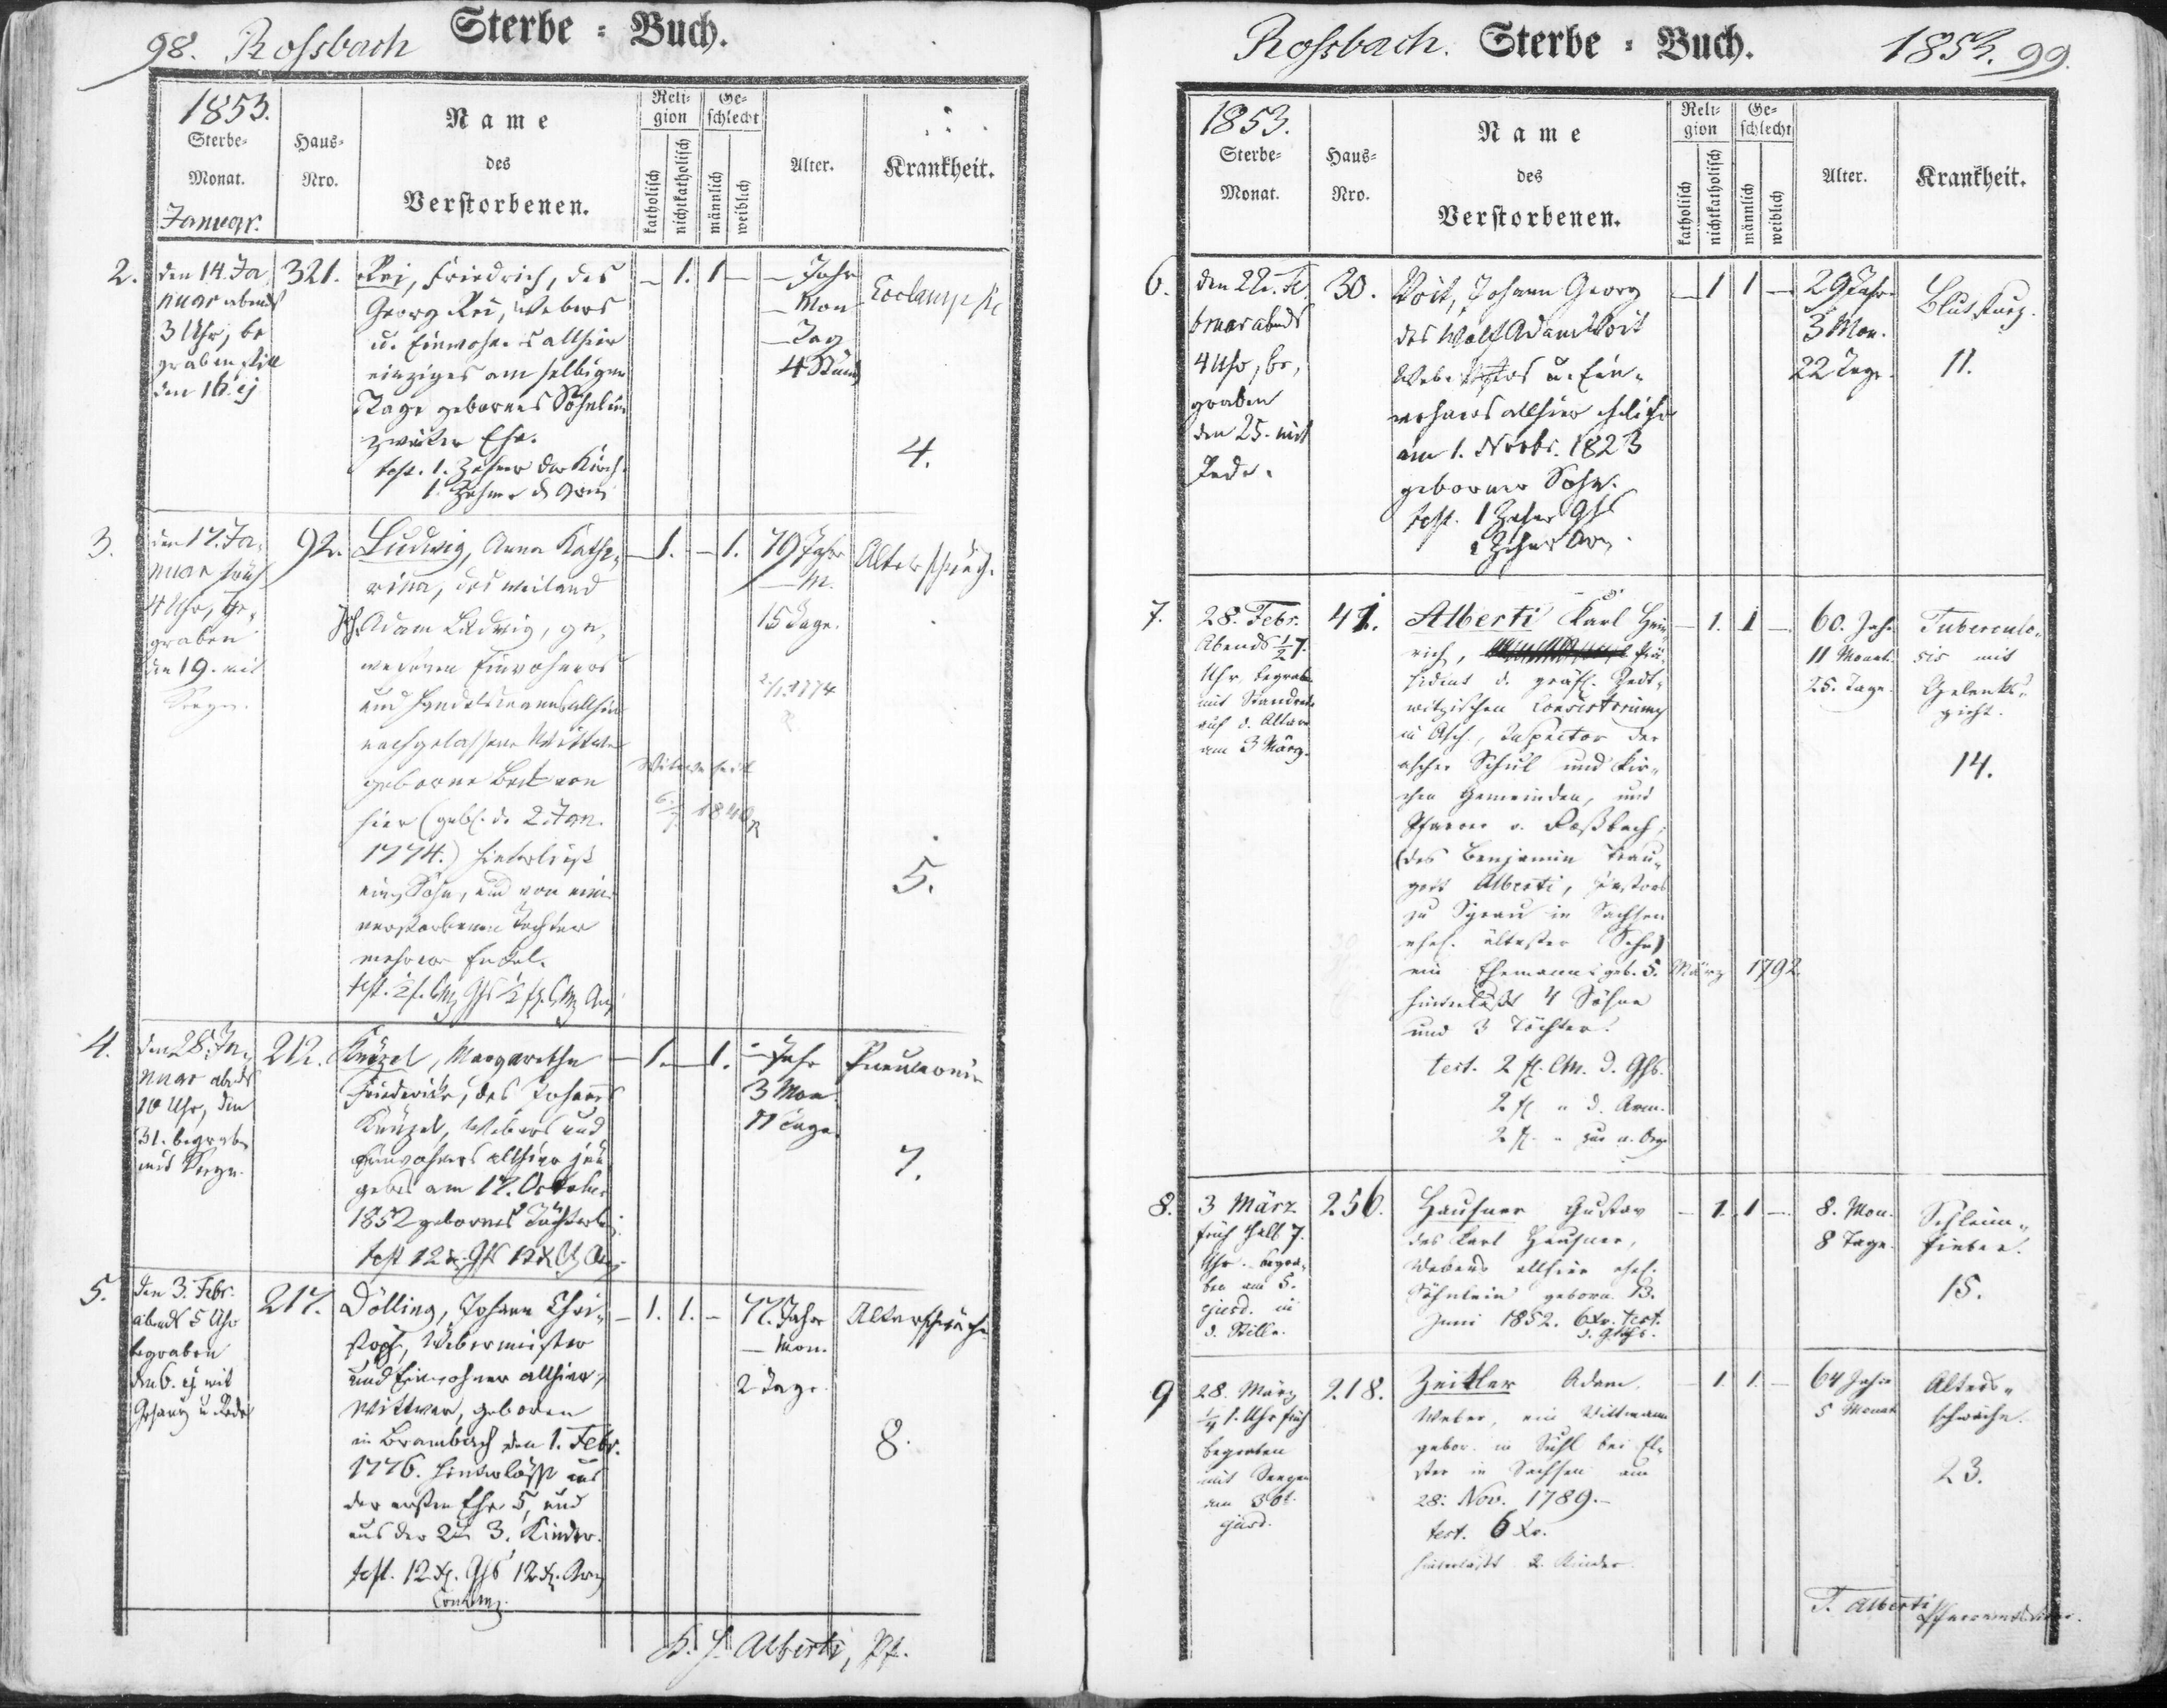 98. Rossbach Sterbe = Buch.
1853.
Sterbe-
Monat.
Januar.
Haus-
Nro.
Name
des
Verstorbenen.
Reli-
gion
katholisch
nichtkatholisch
Ge-
schlecht
männlich
weiblich
Alter.
Krankheit.
2. den 14. Ja
nuar abends
3 Uhr, be
graben still
den 16. ej
321.
Rei, Friedrich, des
Georg Rei, Webers
u. Einwohners allhier
einziges am selbigen
Tage gebornes Söhnlein
zweiter Ehe.
test. 1. Zehner der Kirch.
1. Zehner d Arm
– 1. 1 –
– Jahr
– Mon
– Tag
4 Stund
4.
3. den 17. Ja-
nuar früh
4 Uhr, be-
graben
den 19. mit
Segen.
92.
Ludwig, Anna Katha-
rina, des weiland
Joh. Adam Ludwig, ge-
wesenen Einwohners
und Handelsmanns allhier
nachgelassene Wittwe
geborne
hier (geb. d. 2. Jan.
1774.) hinterläßt
einen Sohn, und von einer
verstorbenen Tochter
mehrere Enkel.
– 1. – 1.
79 Jahr
– M.
15 Tage.
1774
Witwe seit
1840
Altersschwäch.
5.
4. den 28. Ja-
nuar abends
10 Uhr, den
31. begraben
mit Segen.
212.
Künzel, Margaretha
Friederike, des Johann
Künzel, Webers und
Einwohners allhier
am 17. October
1852 gebornes Töchterlein
– 1. – 1.
– Jahr
3 Mon
11 Tage.
Pneumonie
7.
5. den 3. Febr.
abends 5 Uhr
begraben
den 6. ej mit
Gesang u. Rede
217.
Dölling, Johann Chri-
stoph, Webermeister
und Einwohner allhier,
Wittwer, geboren
in Brambach den 1. Febr.
1776. hinterläßt aus
der ersten Ehe 5, und
aus der 2t 3. Kinder.
– 1. 1. –
77. Jahr
– Mon.
2 Tage
Altersschwäche
8.
K. H. Alberti, Pf.
Rossbach. Sterbe = Buch. 1853. 99.
1853.
Sterbe-
Monat.
Haus-
Nro.
Name
des
Verstorbenen.
Reli-
gion
katholisch
nichtkatholisch
Ge-
schlecht
männlich
weiblich
Alter.
Krankheit.
6. den 22. Fe
bruar abends
4 Uhr, be-
graben
den 25. mit
Rede.
30.
Voit, Johann Georg
des Wolf Adam Voit
u. Ein-
wohners allhier ehelicher
am 1. Novbr. 1823
geborner Sohn.
– 1 1 –
29 Jahr
3 Mon.
22 Tage.
Blutsturz.
11.
7. 28. Febr.
Abends ½ 7.
Uhr, begrab.
mit Standrede
auf d. Altar
am 3 März.
41.
Alberti Karl Hein
rich, Prä-
sident d. gräfl. Zedt-
witzischen Consistoriums
in Asch, Inspector der
ascher Schul und Kir-
chen Gemeinden, und
Pfarrer v. Roßbach,
(des Benjamin Trau-
gott Alberti, Pastors
zu Syrau in Sachsen
ehel. ältester Sohn)
ein Ehemann geb. 5. März 1792.
hinterläßt 4 Söhne
und 3 Töchter.
test. 2 fl. CM. d. Ghs.
2 fl. " d. Arm.
– 1. 1 –
60. Jahr
11 Monat.
25. Tage.
Tuberculo-
sis mit
Gelenks-
gicht.
14.
8. 3 März
früh halb 7.
Uhr. begra-
ben am 5.
ejusd. in
d. Stille.
256.
Hausner Gustav
des Karl Hausner,
Webers allhier ehel.
Söhnlein geborn 23.
Juni 1852. 6 kr. test.
– 1. 1 –
8. Mon.
8 Tage.
Schleim-
fieber.
15.
9 28. März
¼ 1. Uhr früh
begraben
mit Segen
am 30t.
ejusd.
218.
Zeitler Adam,
Weber, ein Wittmann
gebor. in Sohl bei El-
ster in Sachsen am
28. Nov. 1789.–
test. 6 kr.
hinterläßt 2. Kinder.
– 1. 1. –
64 Jahr
5 Monat
Alters-
schwäche.
23.
T. Alberti